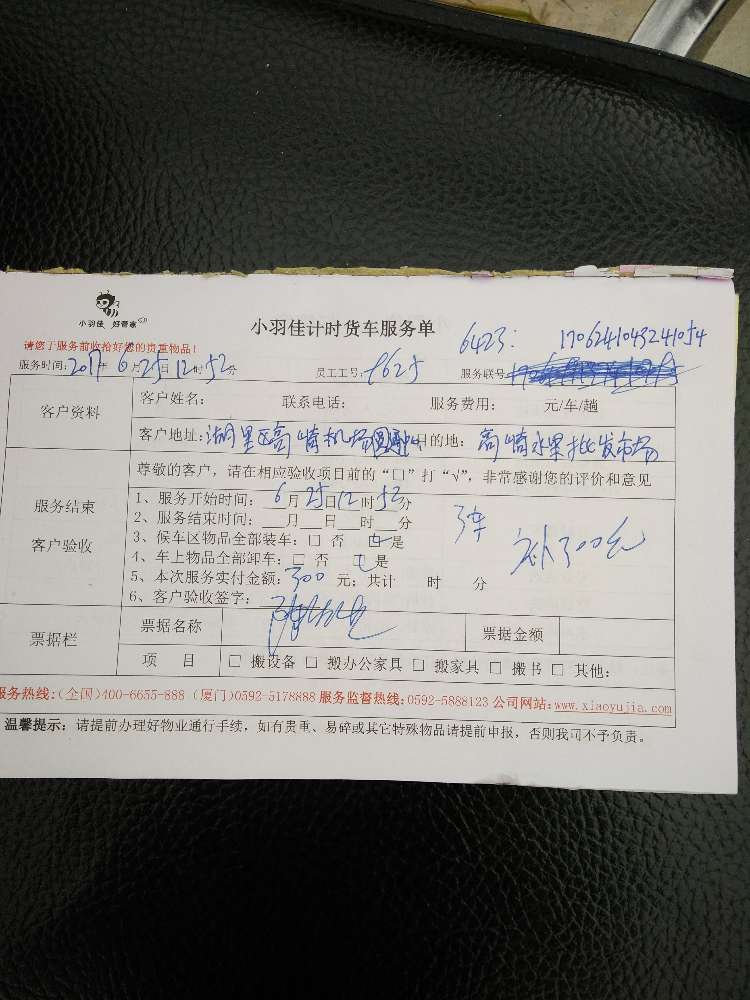 小羽佳 好管家
小羽佳计时货车服务单
请您于服务前收拾好您的贵重物品!
6423: 1706241043241054
服务时间:2017年6月25日12时52分 员工工号:8625 服务联号:
客户资料
客户姓名: 联系电话: 服务费用: 元/车/趟
客户地址:湖里区高崎机场 目的地:高崎水果批发市场
服务结束
客户验收
尊敬的客户,请在相应验收项目前的“□”打“√”,非常感谢您的评价和意见
1、服务开始时间:6月25日12时52分
2、服务结束时间:__月__日__时__分
3、候车区物品全部装车:□ 否 □ 是
4、车上物品全部卸车:□ 否 □ 是
5、本次服务实付金额:300元;共计 时 分
6、客户验收签字:
3车 补300元
票据栏
票据名称 票据金额
项 目 □ 搬设备 □ 搬办公家具 □ 搬家具 □ 搬书 □ 其他:
服务热线:(全国)400-6655-888 (厦门)0592-5178888 服务监督热线:0592-5888123 公司网站:www.xiaoyujia.com
温馨提示:请提前办理好物业通行手续,如有贵重、易碎或其它特殊物品请提前申报,否则我司不予负责。